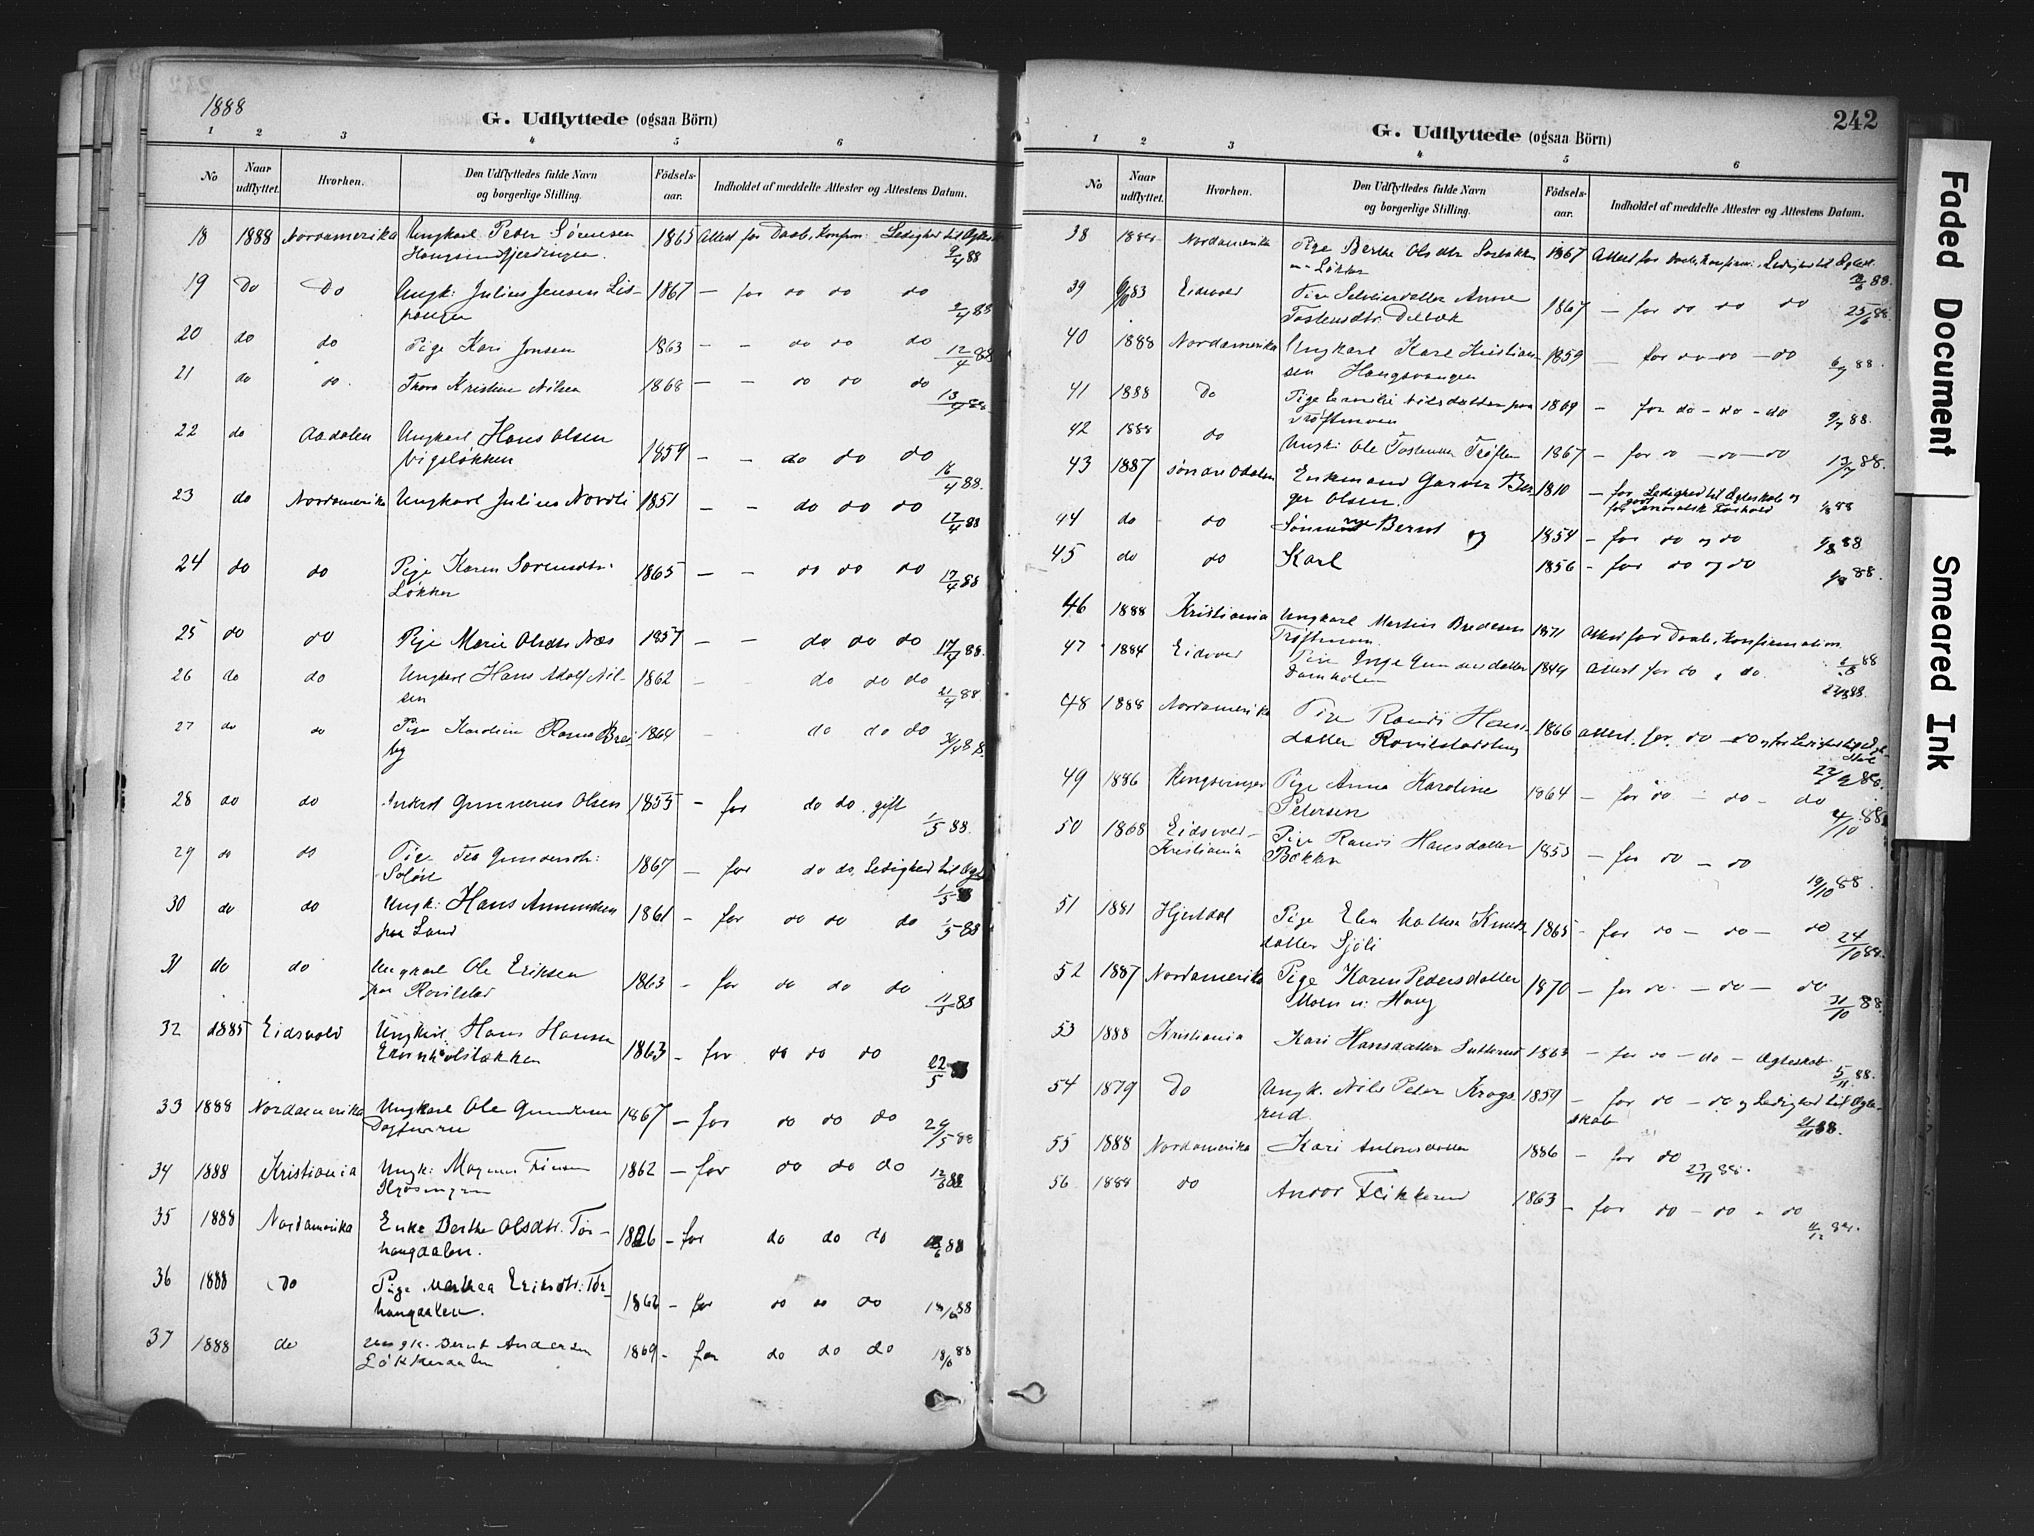 1888
G. Udflyttede (ogsaa Börn)
1 2 3 4 5 6
No
Naar udflyttet.
Hvorhen.
Den Udflyttedes fulde Navn og borgerlige Stilling.
Födsels-aar.
Indholdet af meddelte Attester og Attestens Datum.
18 1888 Nordamerika Ungkarl Peder Sørensen 1865 Attest for Daab, Konfirm: Ledighed til Ægtesk
9/4 88
19 Do Do Ungk: Julius Jensen Lis- 1867 — for do do do
9/4 88
20 do do Pige Kari Jensen 1863 — — do do do
12/4 88
21 do do Thora Kristine Nilsen 1868 — — do do do
13/4 88
22 do Aadalen Ungkarl Hans Olsen 1859 — — do do do
Vigsløkken 16/4 88.
23 do Nordamerika Ungkarl Julius Nordli 1851 — — do do do
17/4 88
24 do do Pige Karen Sorensdtr: 1865 — — do do do
Løkken 17/4 88
25 do do Pige Marie Olsdtr Næs 1857 — — do do do
17/4 88.
26 do do Ungkarl Hans Adolf Nil- 1862 — do do do
sen 21/4 88
27 do do Pige Karoline 1864 — do do do
by
28 do do Gunnerus Olsen 1855 — for do do, gift
1/5 88.
29 do do Pige Gundersdtr: 1867 — for do do, Ledighed til Ægt
1/5 88
30 do do Ungk: Hans Amundsen 1861 — for do do do
paa Lund 1/5 88
31 do do Ungkarl Ole Eriksen 1863 — for do do do
paa Rovilstad 11/5 88
32 1885 Eidsvold Ungkarl Hans Hansen 1863 — for do do do
22/5 88
33 1888 Nordamerika Ungkarl Ole Gundersen 1867 — for do do do
29/5 88
34 1888 Kristiania Ungk: Magnus 1862 — for do do do
12/6 88
35 1888 Nordamerika Enke Berthe Olsdtr. Tor- 1826 — for do do do
haugdalen. 18/6 88
36 1888 Do Pige Marthea Eriksdtr: Tor- 1862 — for do do do
haugdalen. 18/6 88
37 1888 do Ungk. Bernt Andersen 1869 — for do do do
Løkkeraalen 18/6 88
242
G. Udflyttede (ogsaa Börn)
1 2 3 4 5 6
No
Naar udflyttet.
Hvorhen.
Den Udflyttedes fulde Navn og borgerlige Stilling.
Födsels-aar.
Indholdet af meddelte Attester og Attestens Datum.
38 1888 Nordamerika Pige Berthe Olsdtr 1867 Attest for Daab, Konfirm: Ledighed til Ægtesk.
Løkken
39 83 Eidsvold Pige Anne 1867 — for do do do
Tostensdtr. 25/6 88
40 1888 Nordamerika Ungkarl Karl Kristian- 1859 — for do — do — do
sen Haugsvangen 6/7 88.
41 1888 Do Pige nilsdatter paa 1869 — for do — do — do
Trøftmoen 9/7 88.
42 1888 do Ungk: Ole Tostensen Trøften 1867 — for do — do — do
13/7 88.
43 1887 søndre Odalen Enkemand Garver Ber- 1810 — for Ledighed til Ægteskab og
ger Olsen. for godt moralsk Forhold 1/8 88
44 do do Sønnerne Bernt og 1854 — for do og do
1/8 88
45 do do Karl 1856 — for do og do
1/8 88.
46 1888 Kristiania Ungkarl Martin Bredesen 1871 Attest for Daab, Konfirmation
Trøftmoen
47 1884 Eidsvol Pige Inge Gundersdatter 1849 Attest for do, do.
48 1888 Nordamerika Pige Randi Hans- 1866 Attest for do — do og for Ledighed til Ægte-
datter skab
49 1886 Kongsvinger Pige Anna Karoline 1864 — for do — do — do
Petersen 4/10 88
50 1868 Eidsvold— Pige Randi Hansdatter 1853 — for do — do
Kristiania Bækken 19/10 88.
51 1881 Hjerdal Pige Knuds- 1865 — for do — do — do
datter Sjøli 24/10 88.
52 1887 Nordamerika Pige Karen Pedersdatter 1870 — for do — do — do
Moen u: Haug 31/10 88
53 1888 Kristiania Kari Hansdatter 1863 — for do — do — Ægteskab
5/11 88.
54 1879 Do Ungk. Nils Peter Krogs- 1859 — for do — do og Ledighed til Ægte-
rud. skab 88.
55 1888 Nordamerika Kari Antonsdatter 1886 — for do 23/11 88.
56 1888 do Andor Flikkerud 1863 — for do — do — do
11/12 88.
Faded Document
Smeared Ink